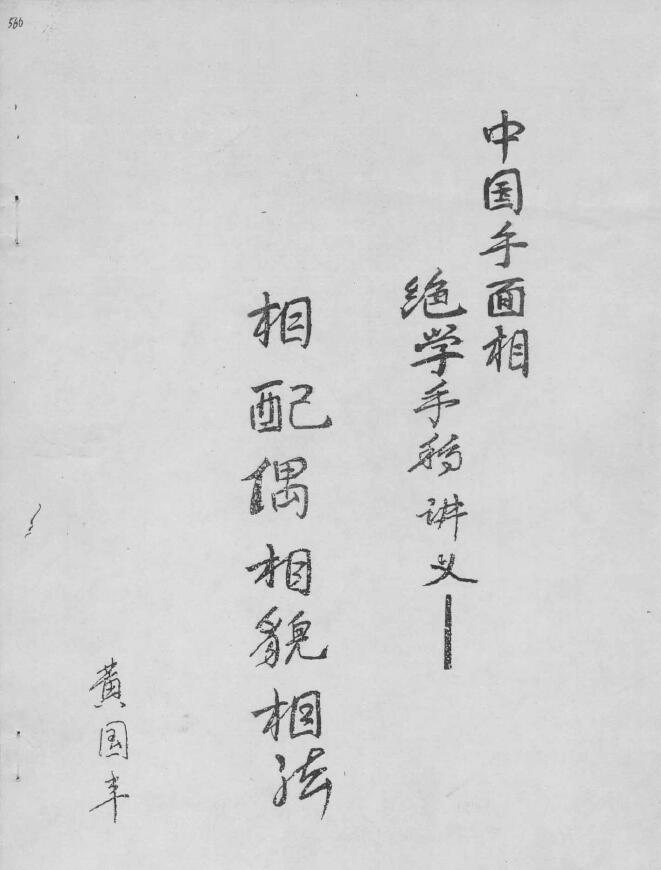 560
中国手面相
绝学手稿讲义—
相配偶相貌相法
黄国丰